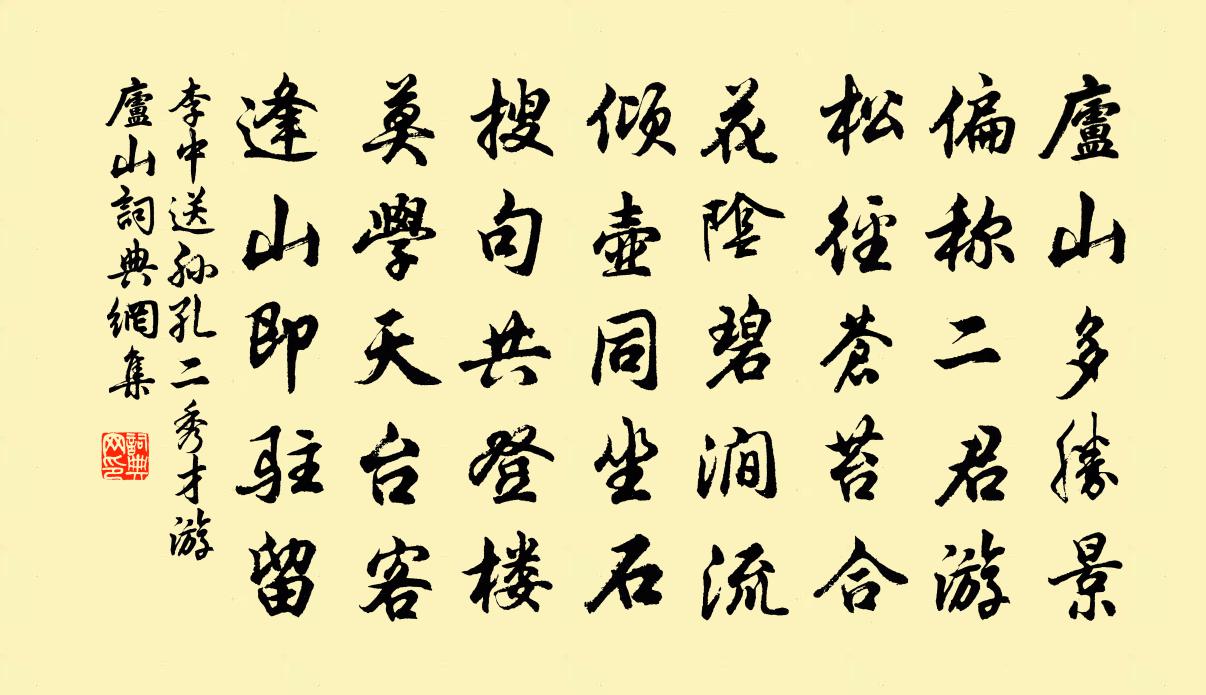 廬山多勝景
偏称二君游
松徑蒼苔合
花陰碧澗流
倾壺同坐石
搜句共登楼
莫學天台客
逢山即駐留
李中送孙孔二秀才游
廬山詞典網集
詞典网印